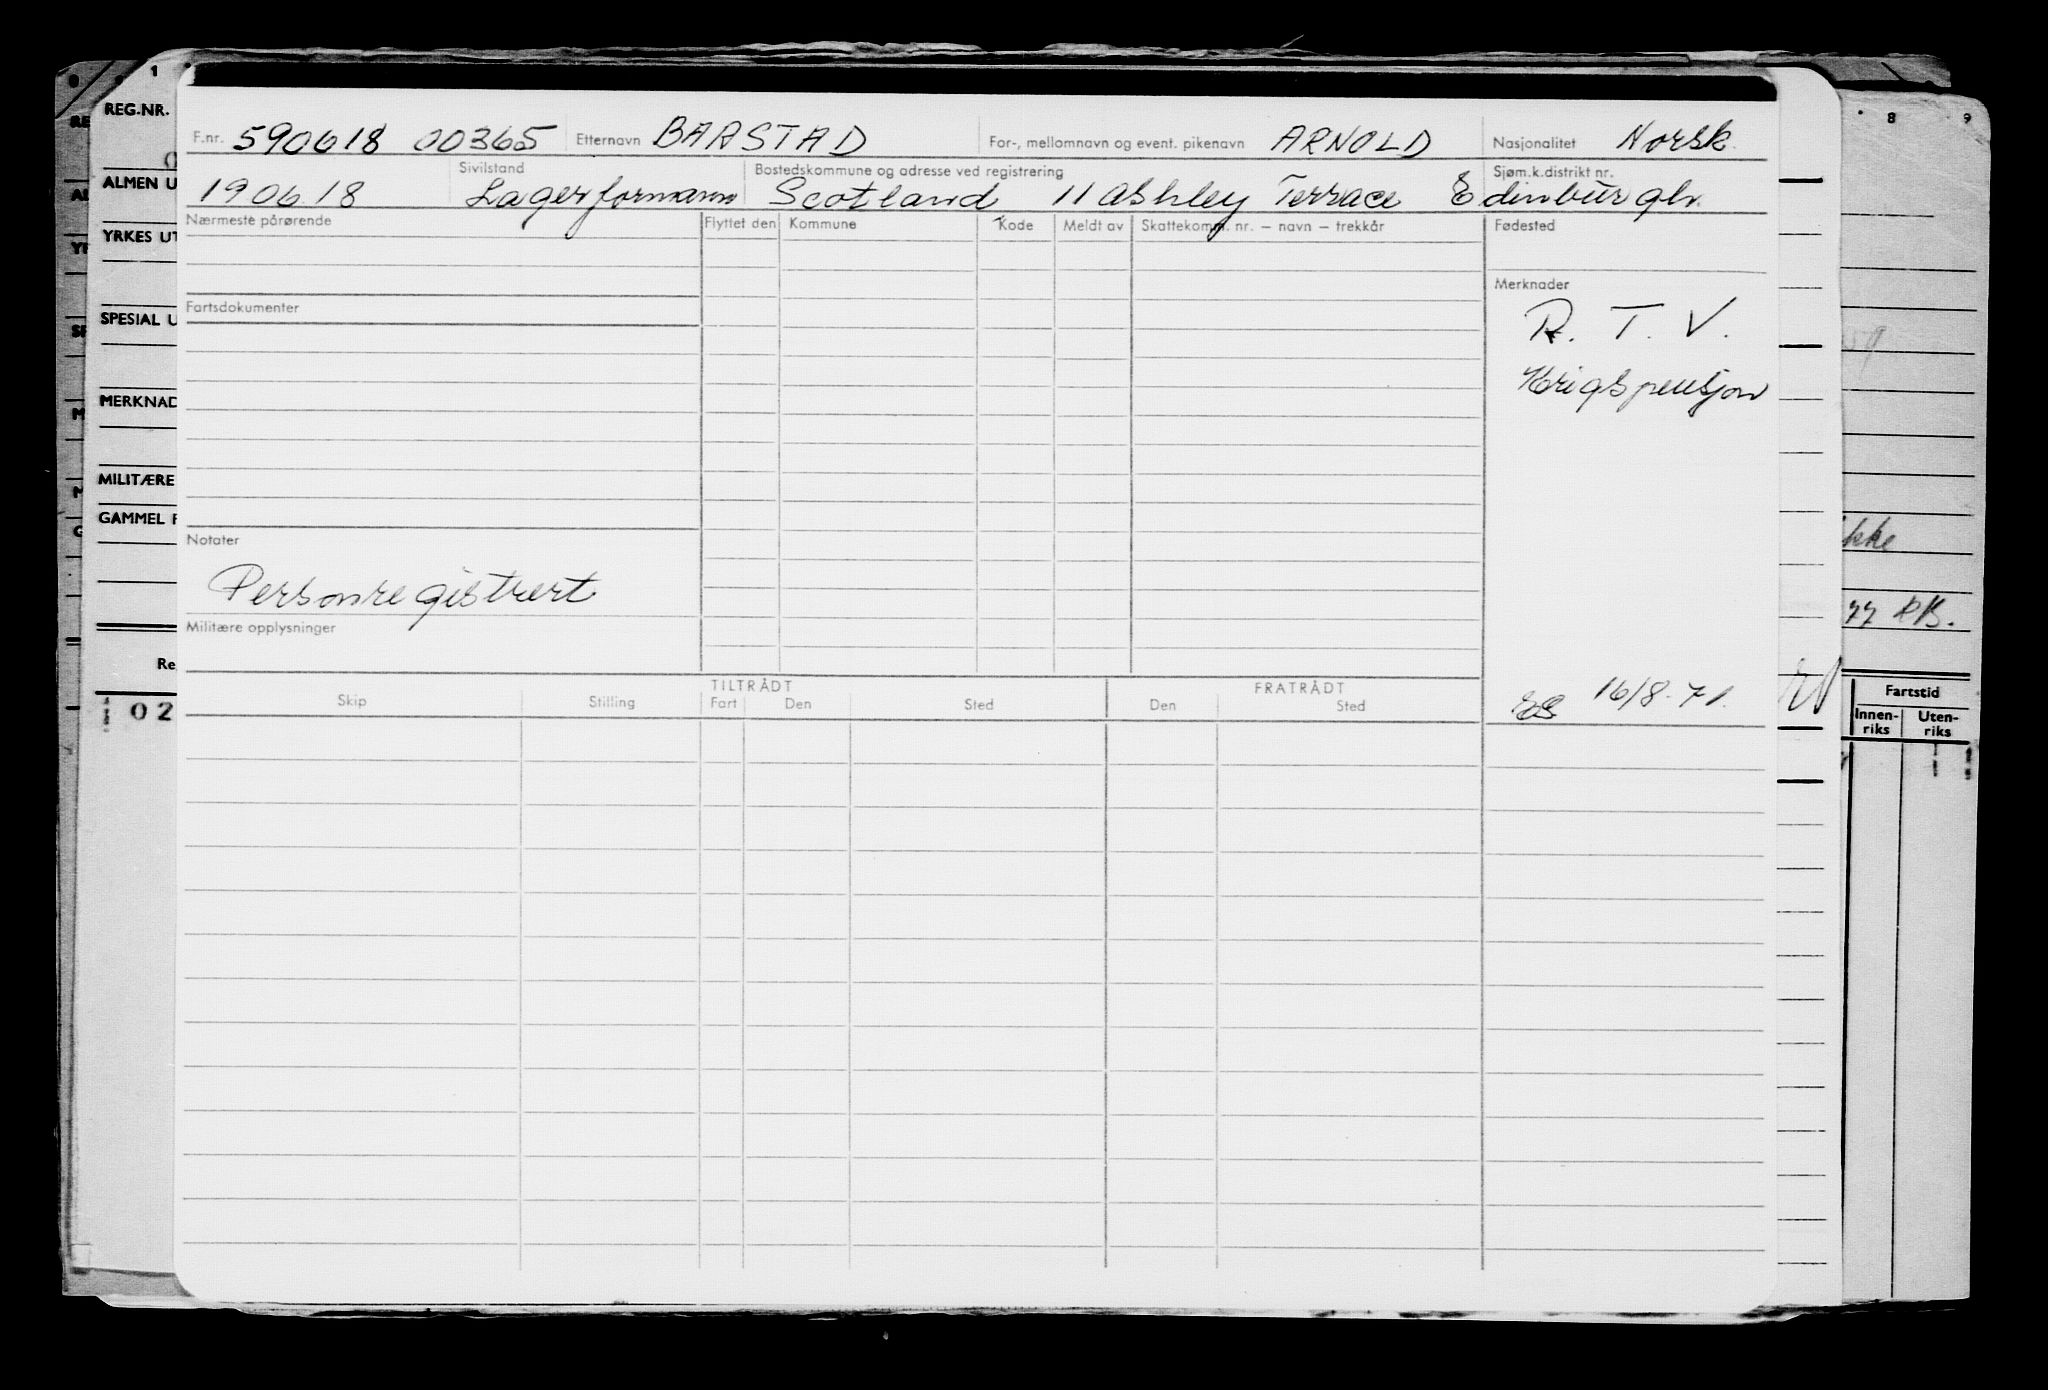 1 8 9
REG.NR.
F.nr. 590618 00365 Etternavn BARSTAD For-, mellomnavn og event. pikenavn ARNOLD Nasjonalitet Norsk.
190618 Sivilstand Lagerformann Bostedskommune og adresse ved registrering Scotland 11 Ashley Terrace Edinburgh. Sjøm.k.distrikt nr.
ALMEN U
YRKES UT
SPESIAL U
MERKNAD
MILITÆRE
GAMMEL F
Nærmeste pårørende Flyttet den Kommune Kode Meldt av Skattekomm. nr. – navn – trekkår Fødested
Merknader
Fartsdokumenter
R. T. V.
Krigspensjon
Notater
Personregistrert
Militære opplysninger
ikke
77 RB.
Re
02
TILTRÅDT FRATRÅDT
Skip Stilling Fart Den Sted Den Sted
16/8-71.
Fartstid
Innen-riks Uten-riks